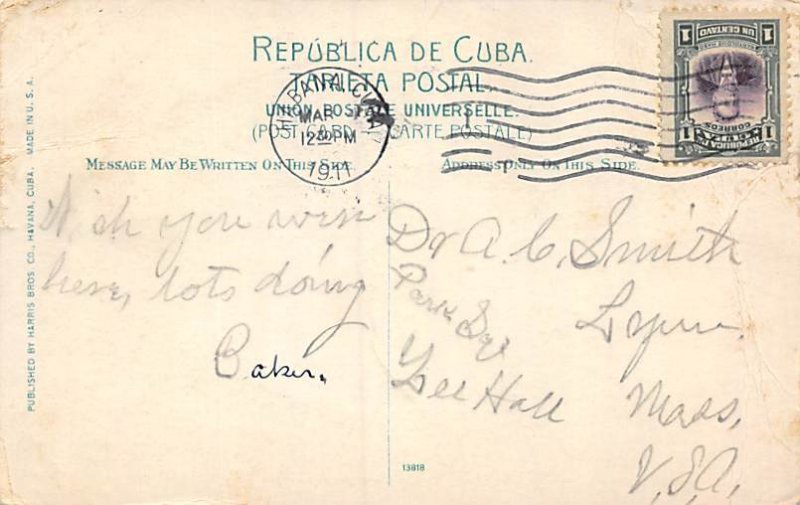 REPÚBLICA DE CUBA.
TARJETA POSTAL.
UNION POSTALE UNIVERSELLE.
(POST CARD CARTE POSTALE)
MESSAGE MAY BE WRITTEN ON THIS SIDE.
ADDRESS ONLY ON THIS SIDE.
HABANA, CUBA
MAR
12 30 PM
1911
1 UN CENTAVO 1
CORREOS
1 REPUBLICA DE CUBA 1
Wish you were
here, lots doing
Baker.
Dr A. C. Smith
Park Sqe
Lynn.
Lee Hall
Mass,
U.S.A,
13818
PUBLISHED BY HARRIS BROS. CO., HAVANA, CUBA. MADE IN U.S.A.